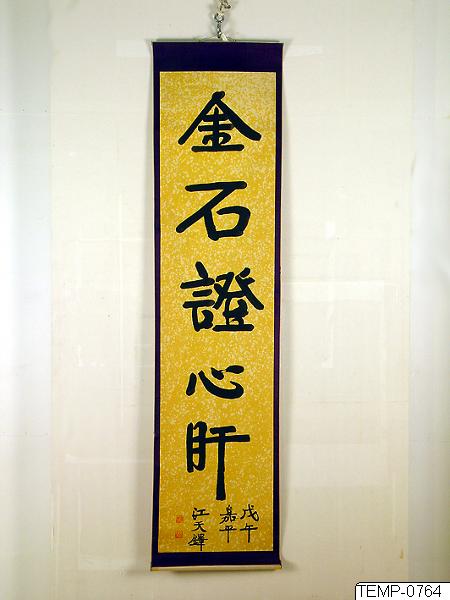 金石證心肝
戊午
嘉平
江天鐸
TEMP-0764